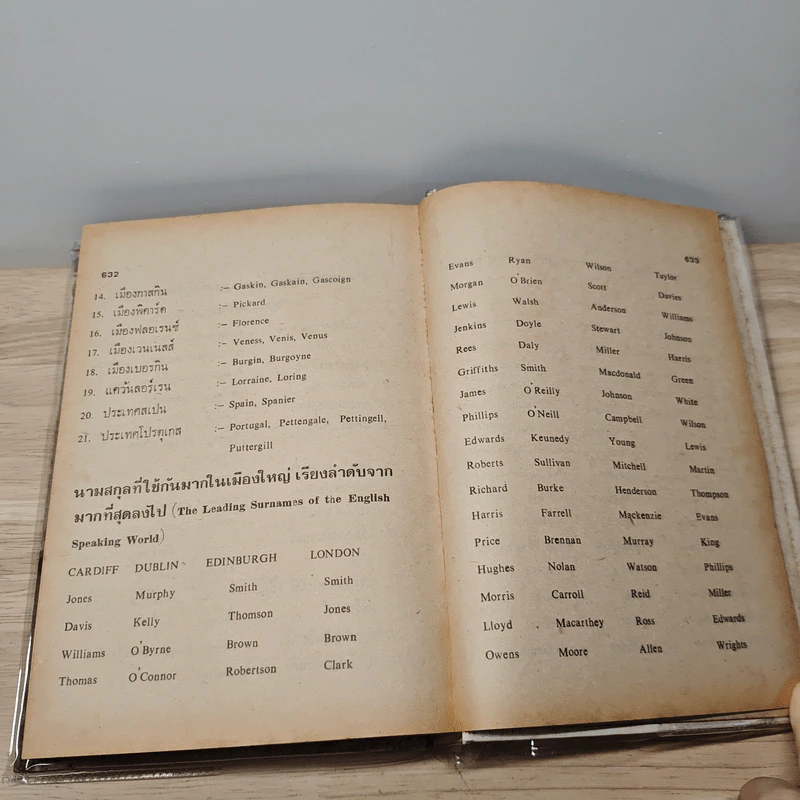 632
14. เมืองกาสกิน :– Gaskin, Gaskain, Gascoign
15. เมืองพิคาร์ด :– Pickard
16. เมืองฟลอเรนซ์ :– Florence
17. เมืองเวนเนสส์ :– Veness, Venis, Venus
18. เมืองเบอรกิน :– Burgin, Burgoyne
19. แคว้นลอร์เรน :– Lorraine, Loring
20. ประเทศสเปน :– Spain, Spanier
21. ประเทศโปรตุเกส :– Portugal, Pettengale, Pettingell,
Puttergill
นามสกุลที่ใช้กันมากในเมืองใหญ่ เรียงลำดับจาก
มากที่สุดลงไป (The Leading Surnames of the English
Speaking World)
CARDIFF DUBLIN EDINBURGH LONDON
Jones Murphy Smith Smith
Davis Kelly Thomson Jones
Williams O'Byrne Brown Brown
Thomas O'Connor Robertson Clark
633
Evans Ryan Wilson Taylor
Morgan O'Brien Scott Davies
Lewis Walsh Anderson Williams
Jenkins Doyle Stewart Johnson
Rees Daly Miller Harris
Griffiths Smith Macdonald Green
James O'Reilly Johnson White
Phillips O'Neill Campbell Wilson
Edwards Keunedy Young Lewis
Roberts Sullivan Mitchell Martin
Richard Burke Henderson Thompson
Harris Farrell Mackenzie Evans
Price Brennan Murray King
Hughes Nolan Watson Phillips
Morris Carroll Reid Miller
Lloyd Macarthey Ross Edwards
Owens Moore Allen Wrights